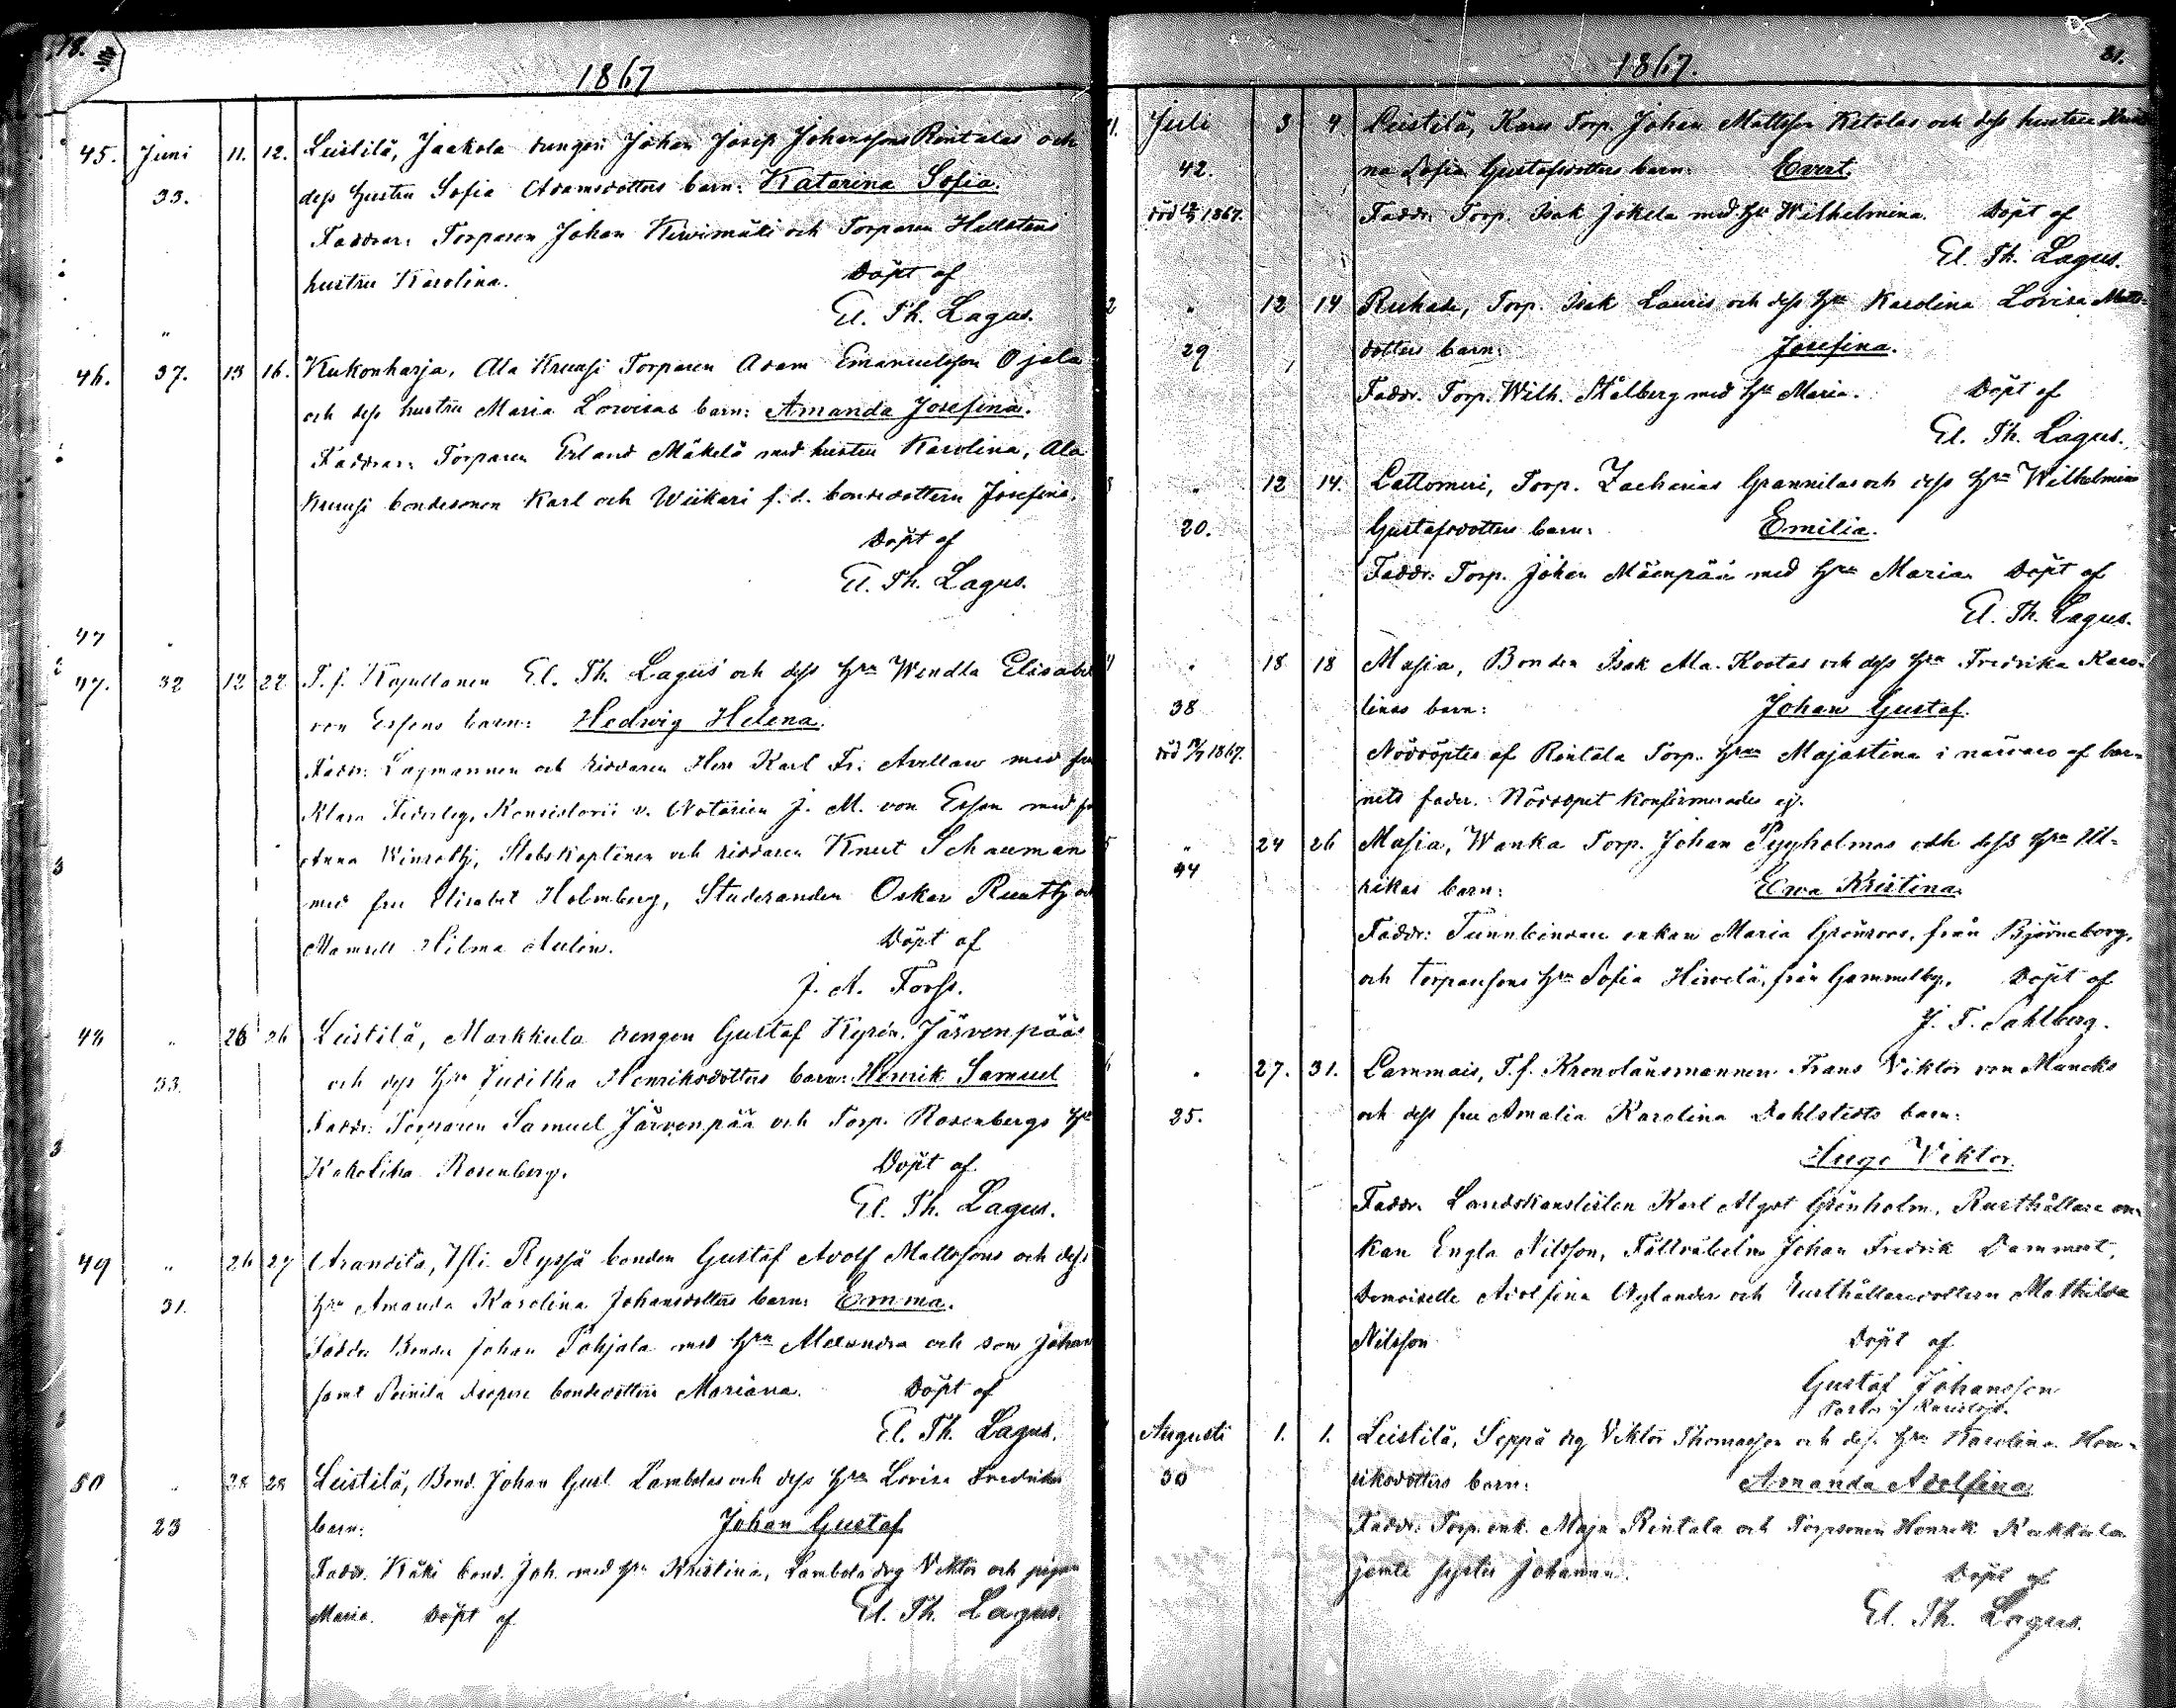 1867
45. Juni 11. 12. Leistilä, Jaakola drengen Johan Josep Johanssons Rintalas och
33. dess hustru Sofia Adamsdotters barn: Katarina Sofia.
Faddrar: Torparen Johan Kiwimäki och Torparen Hellstens
hustru Karolina. Döpt af
El. Th. Lagus.
"
46. 37. 13 16. Kukonharja, Ala Kruusi Torparen Adam Emanuelsson Ojala
och dess hustru Maria Lovisas barn: Amanda Josefina.
Faddrar: Torparen Erland Mäkelä med hustru Karolina, Ala
Kruusi bondesonen Karl och Wiikari f.d. bondedottern Josefina.
Döpt af
El. Th. Lagus.
47
47. 32 12 22 T.f. Kapellanen El. Th. Lagus och dess hru Wendla Elisabet
von Essens barn: Hedwig Helena.
Faddr: Lagmannen och riddaren Herr Karl Fr. Avellan med fru
Klara Federley, Konsistorii v. Notarien J. M. von Essen med fru
Anna Winroth, Stabskaptenen och riddaren Knut Schauman
med fru Elisabet Holmberg, Studeranden Oskar Runth och
Mamsell Hilma Aulin. Döpt af
J. A. Forss.
48 " 26 26 Leistilä, Markkula drengen Gustaf Kyrén Järvenpääs
33. och dess hru Juditha Henriksdotters barn: Henrik Samuel
Faddr: Torparen Samuel Järvenpää och Torp. Rosenbergs hru
Rosenberg. Döpt af
El. Th. Lagus.
49 " 26 27 Arandila, Isti Ryssä bonden Gustaf Adolf Mattssons och dess
31. hru Amanda Karolina Johansdotters barn: Emma.
Faddr. Bonden Johan Pohjala med hru Alexandra och son Johan
samt bondedottern Mariana. Döpt af
El. Th. Lagus.
50 " 28 28 Leistilä, Bond. Johan Gust Lambolas och dess hru Lovisa Fredrikas
23 barn: Johan Gustaf
Faddr. Käki bond. Joh. med hru Kristina, Lambola drg Viktor och pigan
Maria. Döpt af El. Th. Lagus.
1867. 31.
Juli 3 4 Leistilä, Kares Torp. Johan Mattsson Ketolas och dess hustru Kristi
42. na Sofia Gustafsdotters barn: Evert.
död 1867. Faddr. Torp. Isak Jokela med hru Wilhelmina. Döpt af
El. Th. Lagus.
" 12 14 Ruhade, Torp. Isak Lauris och dess hru Karolina Lovisa Matts-
29 dotters barn: Josefina.
Faddr. Torp. Wilh. Stålberg med hru Maria. Döpt af
El. Th. Lagus.
" 12 14. Lattomeri, Torp. Zacharias Grannilas och dess hru Wilhelmina
20. Gustafsdotters barn: Emilia.
Faddr: Torp. Johan Mäenpää med hru Maria. Döpt af
El. Th. Lagus.
" 18 18 Masia, Bonden Isak Ala-Kootas och dess hru Fredrika Karo-
38 linas barn: Johan Gustaf.
död 1867. Nöddöptes af Rintala Torp. hrun Majastina i närvaro af bar-
nets fader. Nöddopet konfirmerades ej.
" 24 26 Masia, Wanka Torp. Johan Pyyholmas och dess hru Ul-
44 rikas barn: Ewa Kristina.
Faddr: Tunnbindare enkan Maria Grönroos, från Björneborg,
och torparesons hru Sofia Hirvelä, från Gammelby. Döpt af
J. F. Sahlberg.
" 27. 31. Lammais, T.f. Kronolänsmannen Frans Viktor von Mancks
25. och dess fru Amalia Karolina Dahlstedts barn:
Hugo Viktor.
Faddr. Landskanslisten Karl Algot Grönholm, Rusthållare en-
kan Engla Nilsson, Fältväbeln Johan Fredrik Dammert,
Demoiselle Adolfina Nylander och rusthållaredottern Mathilda
Nilsson Döpt af
Gustaf Johansson
Augusti 1. 1. Leistilä, Seppä drg Viktor Thomasson och dess hru Karolina Hen-
30 riksdotters barn: Amanda Adolfina
Faddr: Torp. enk. Maja Rintala och Torpsonen Henrik Rekkola
jemte syster Johanna. Döpt af
El. Th. Lagus.